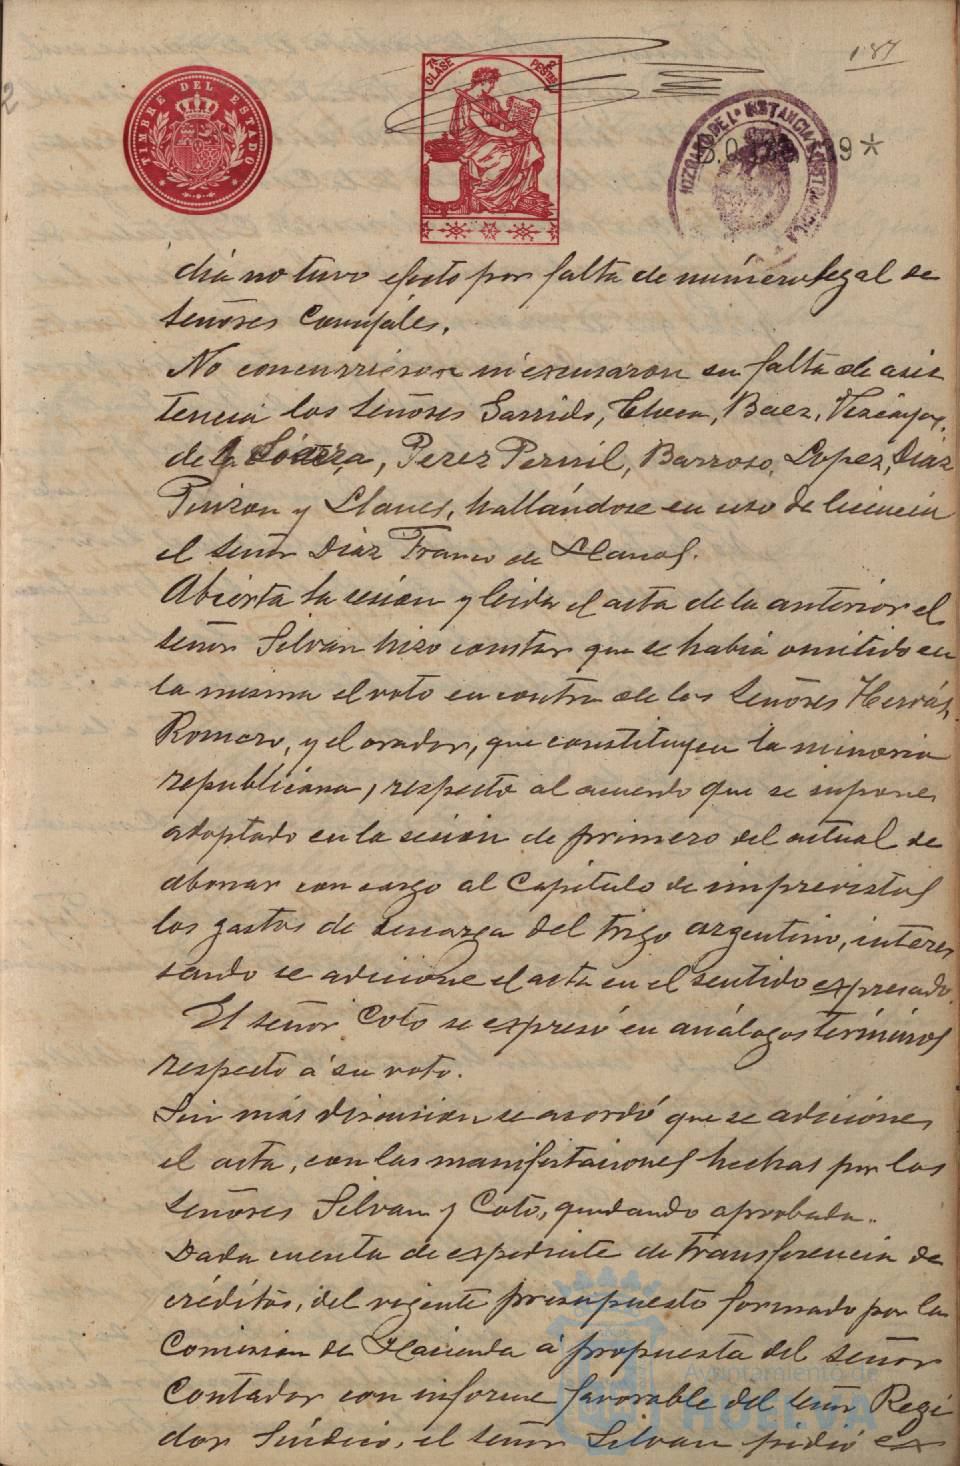 187
TIMBRE DEL ESTADO
7ª CLASE 2 PESETAS
JUZGADO DE 1ª INSTANCIA
9*
dia no tuvo efecto por falta de número legal de
señores Concejales.
No concurrieron ni excusaron su falta de asis
tencia los señores Garrido, Checa, Baez, Vizcaya,
de la Corte, Perez Pernil, Barroso, Lopez, Diaz
Pinzon y Llanes, hallándose en uso de licencia
el señor Diaz Franco de Llanos.
Abierta la sesion y leida el acta de la anterior el
señor Silvan hizo constar que se habia omitido en
la misma el voto en contra de los señores Hervás,
Romero, y el orador, que constituyen la minoria
republicana, respecto al acuerdo que se supone
adoptado en la sesion de primero del actual de
abonar con cargo al Capitulo de imprevistos
los gastos de descarga del trigo argentino, intere
sando se adicione el acta en el sentido expresado.
El señor Coto se expresó en análogos términos
respecto á su voto.
Sin más discusion se acordó que se adicione
el acta, con las manifestaciones hechas por los
señores Silvan y Coto, quedando aprobada.
Dada cuenta de expediente de transferencia de
créditos, del vigente presupuesto formado por la
Comision de Hacienda á propuesta del señor
Contador con informe favorable del señor Regi
dor Sindico, el señor Silvan pidió ex
Ayuntamiento de
HUELVA